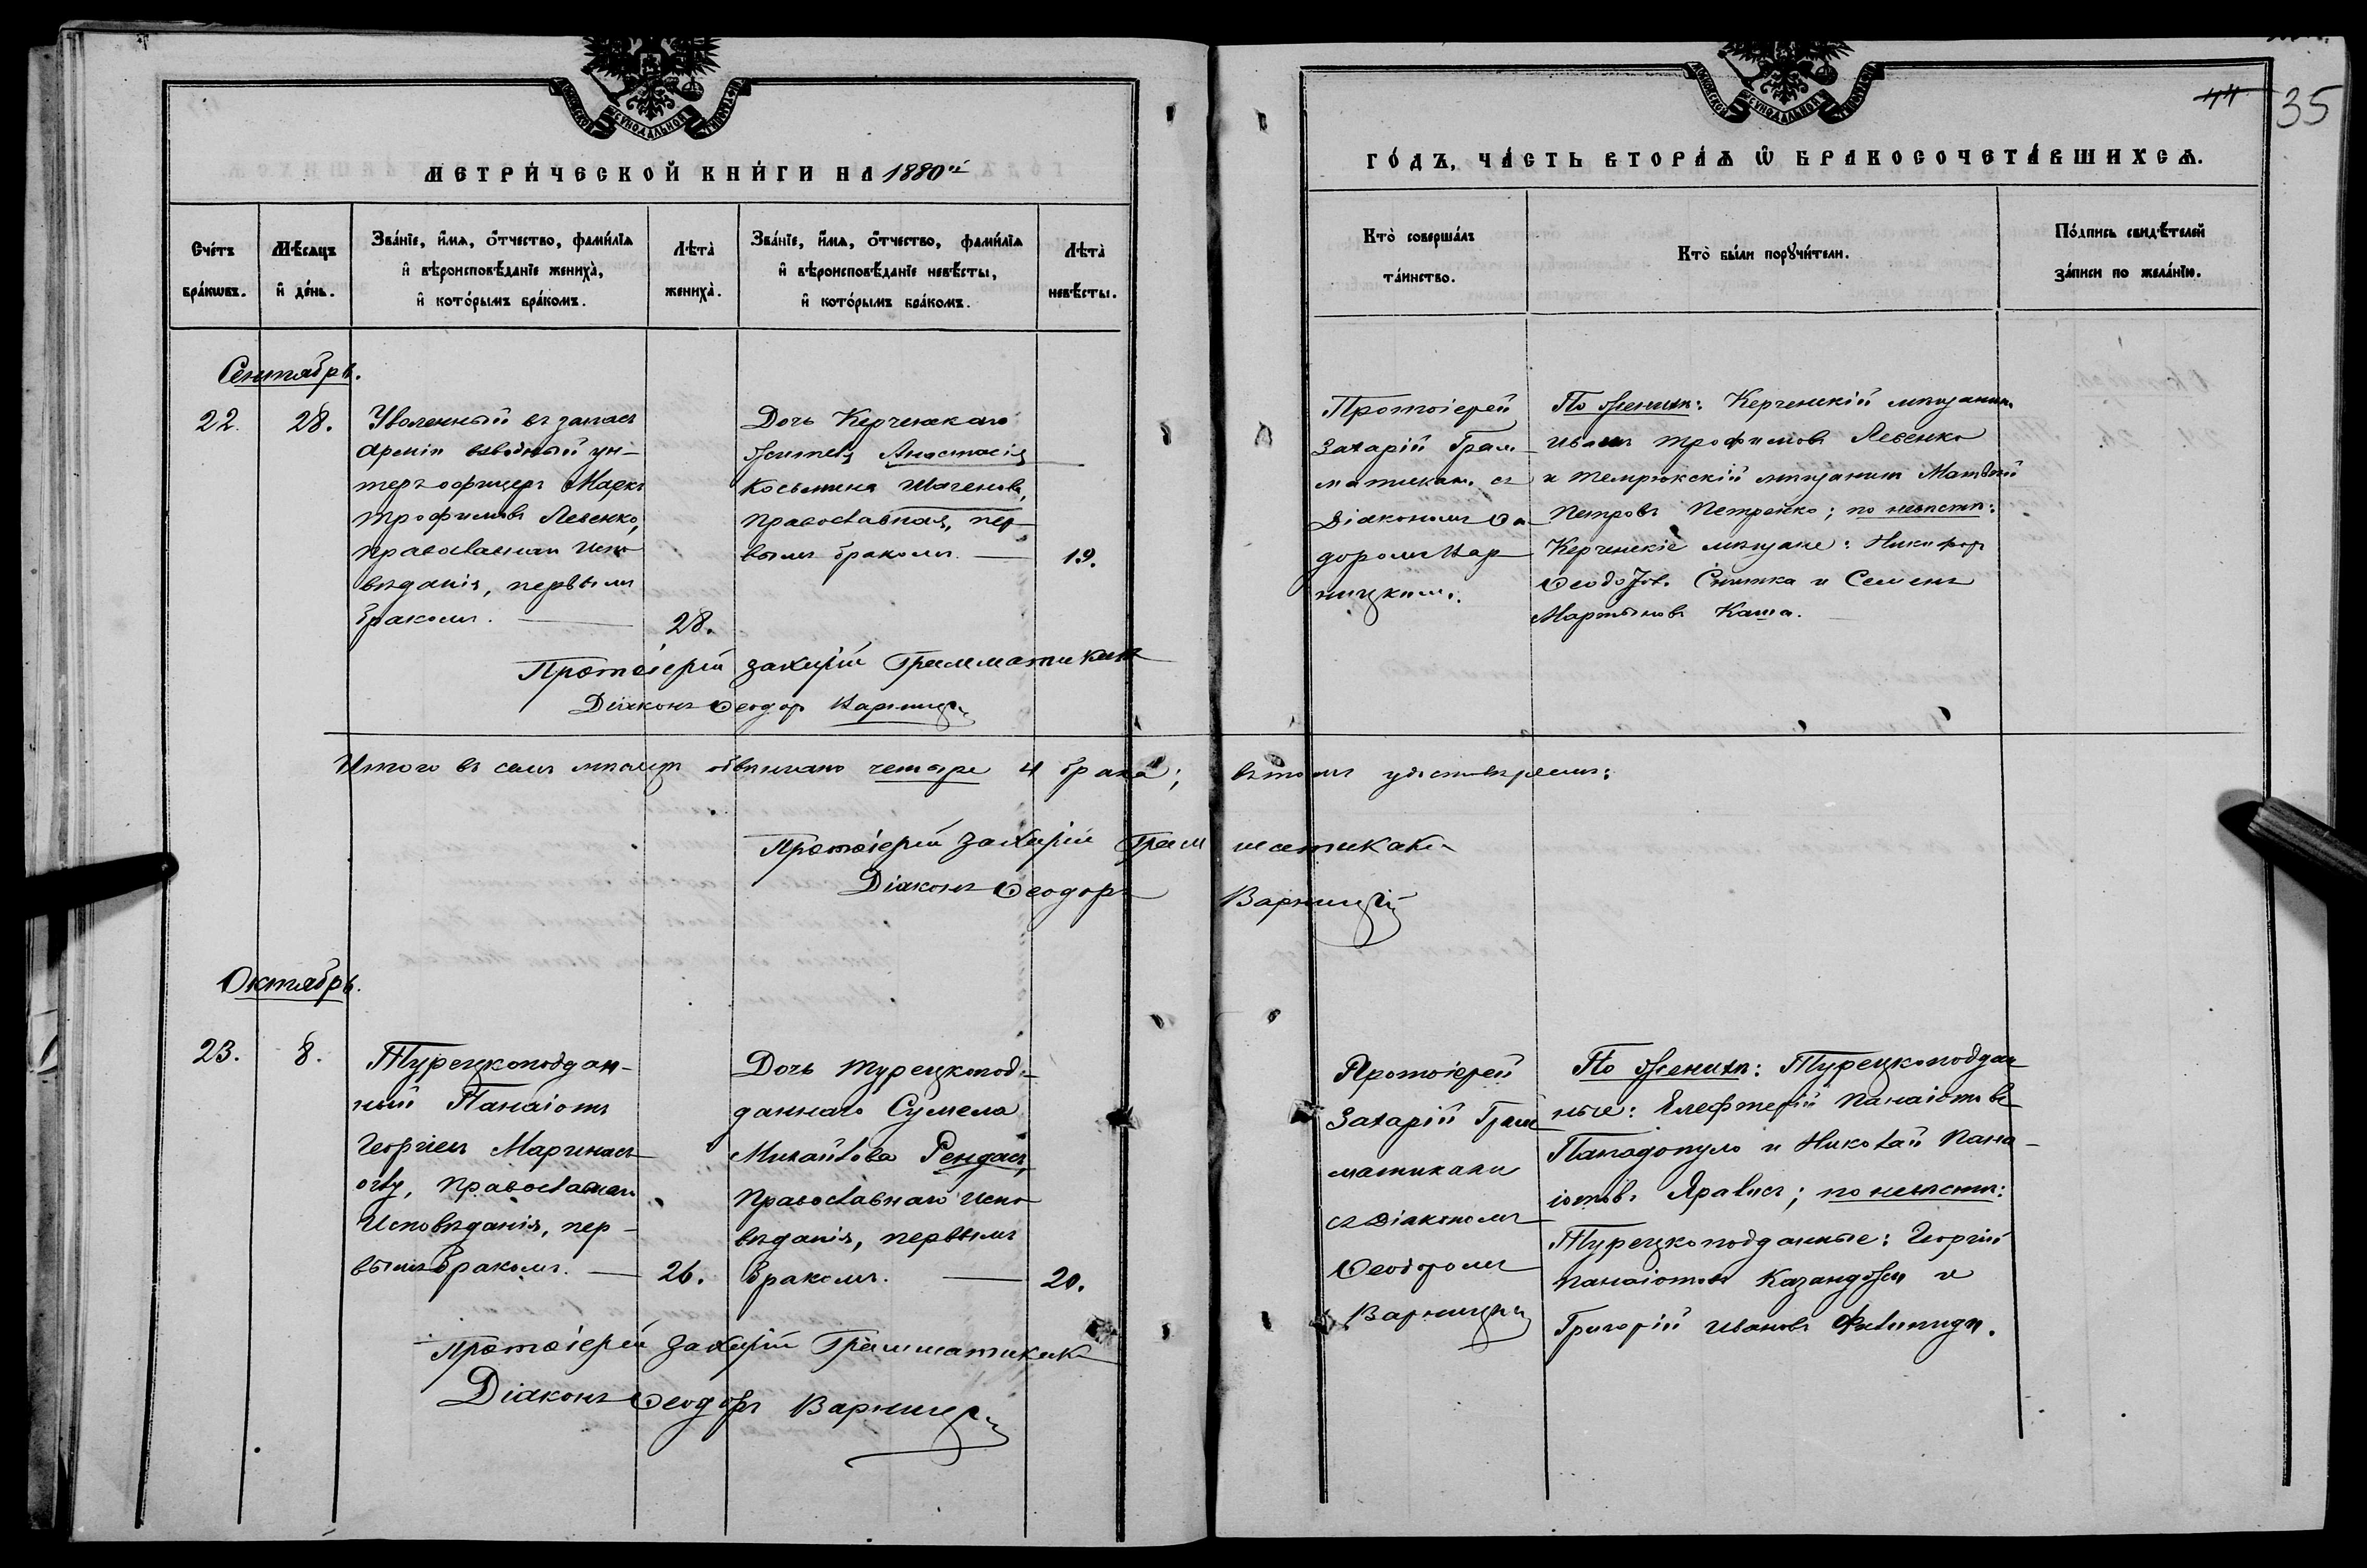 МЕТРИ́ЧЕСКОЙ КНИ́ГИ НА 1880й
Сче́тъ бра́кѡвъ.
Мѣ́сяцъ и҆ де́нь.
Зва́нїе, и҆́мѧ, ѻ҆́тчество, фами́лїѧ и҆ вѣроисповѣ́данїе жениха̀, и҆ кото́рымъ бра́комъ.
Лѣта̀ жениха̀.
Зва́нїе, и҆́мѧ, ѻ҆́тчество, фами́лїѧ и҆ вѣроисповѣ́данїе невѣ́сты, и҆ кото́рымъ бра́комъ.
Лѣта̀ невѣ́сты.
Сентябрь.
22.
28.
Уволенный въ запасъ
Арміи взводный ун-
теръ офицеръ Маркъ
Трофимовъ Левенко,
православнаго испо
вѣданія, первымъ
бракомъ.
28.
Дочь Керченскаго
жителя Анастасія
Косьмина
православная, пер-
вымъ бракомъ
19.
Протоіерей Захарій Грамматикати
Діаконъ Ѳеодоръ Варницкій
Итого въ семъ мѣсяцѣ обвѣнчано четыре 4 брака;
Протоіерей Захарій Грам
Діаконъ Ѳеодоръ
Октябрь.
23.
8.
Турецкоподдан-
ный Панаіотъ
Георгіевъ Маринасъ
оглу, православнаго
Исповѣданія, пер-
вымъ бракомъ.
26.
Дочь турецкопод-
даннаго Сумела
Михайлова Рендасъ,
Православнаго испо
вѣданія, первымъ
бракомъ.
20.
Протоіерей Захарій Грамматикати
Діаконъ Ѳеодоръ Варницкій
44
35
ГО́ДЪ, ЧА́СТЬ ВТОРА́Ѧ Ѽ БРАКОСОЧЕТА́ВШИХСѦ.
Кто̀ соверша́лъ та́инство.
Кто̀ бы́ли порꙋчи́тели.
По́дпись свидѣ́телей за́писи по жела́нїю.
Протоіерей
Захарій Грам-
матикати съ
Діакономъ Ѳе
доромъ Вар
ницкимъ.
По женихѣ: Керченскій мѣщанинъ
Иванъ Трофимовъ Левенко
и Темрюкскій мѣщанинъ Матвѣй
Петровъ Петренко; по невѣстѣ:
Керченскіе мѣщане: Никифоръ
Ѳеодоров. Снитка и Семенъ
Мартыновъ Каша.
въ томъ удостовѣряемъ:
матикати
Варницкій
Протоіерей
Захарій Грам
матикати
съ Діакономъ
Ѳеодоромъ
Варницкимъ
По женихѣ: Турецкоподдан
ные: Елефтерій Панаіотовъ
Пападопуло и Николай Пана-
іотовъ; по невѣстѣ:
Турецкоподданные: Георгій
Панаіотовъ Казанджи и
Григорій Ивановъ Филипиди.